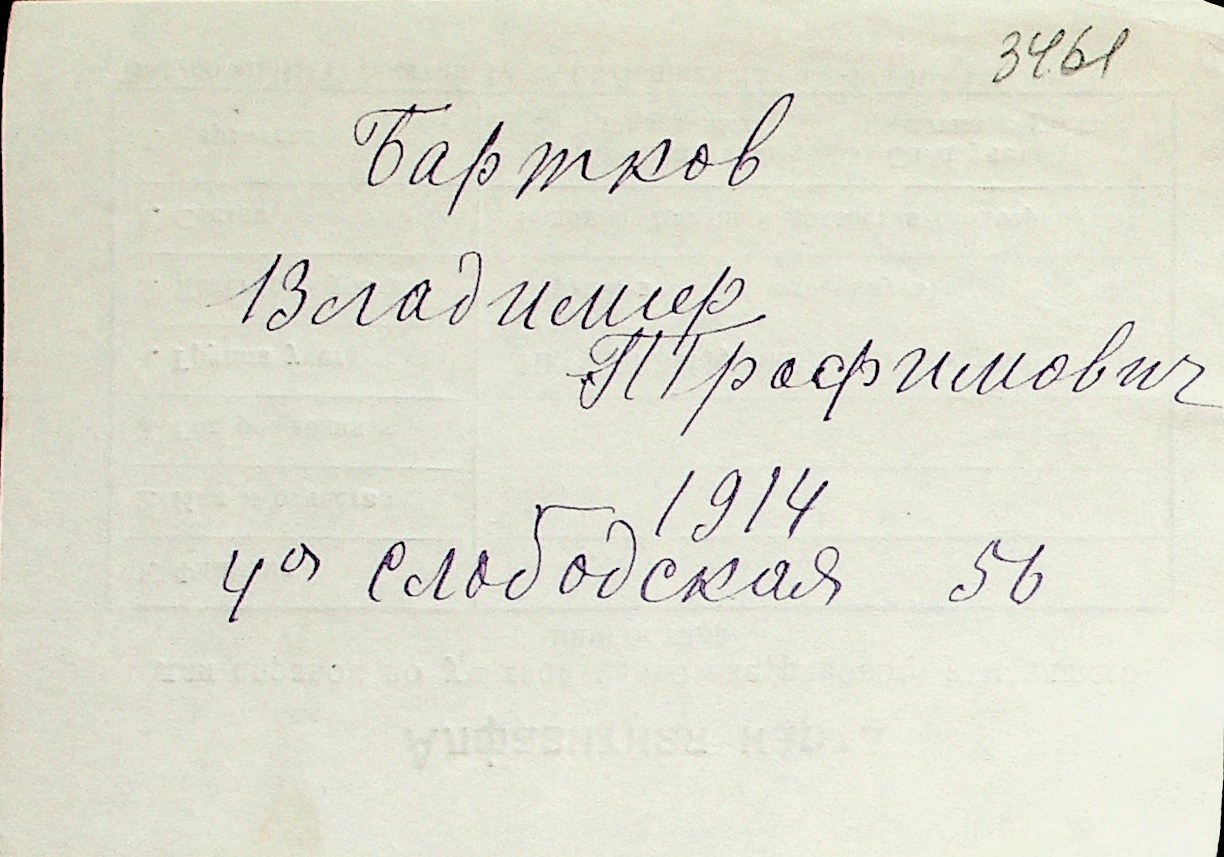 3461
Бартков
Владимир
Трофимович
1914
4ая слободская 56